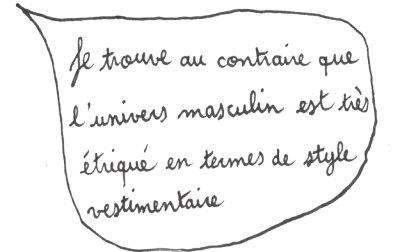 Je trouve au contraire que
l'univers masculin est très
étriqué en termes de style
vestimentaire